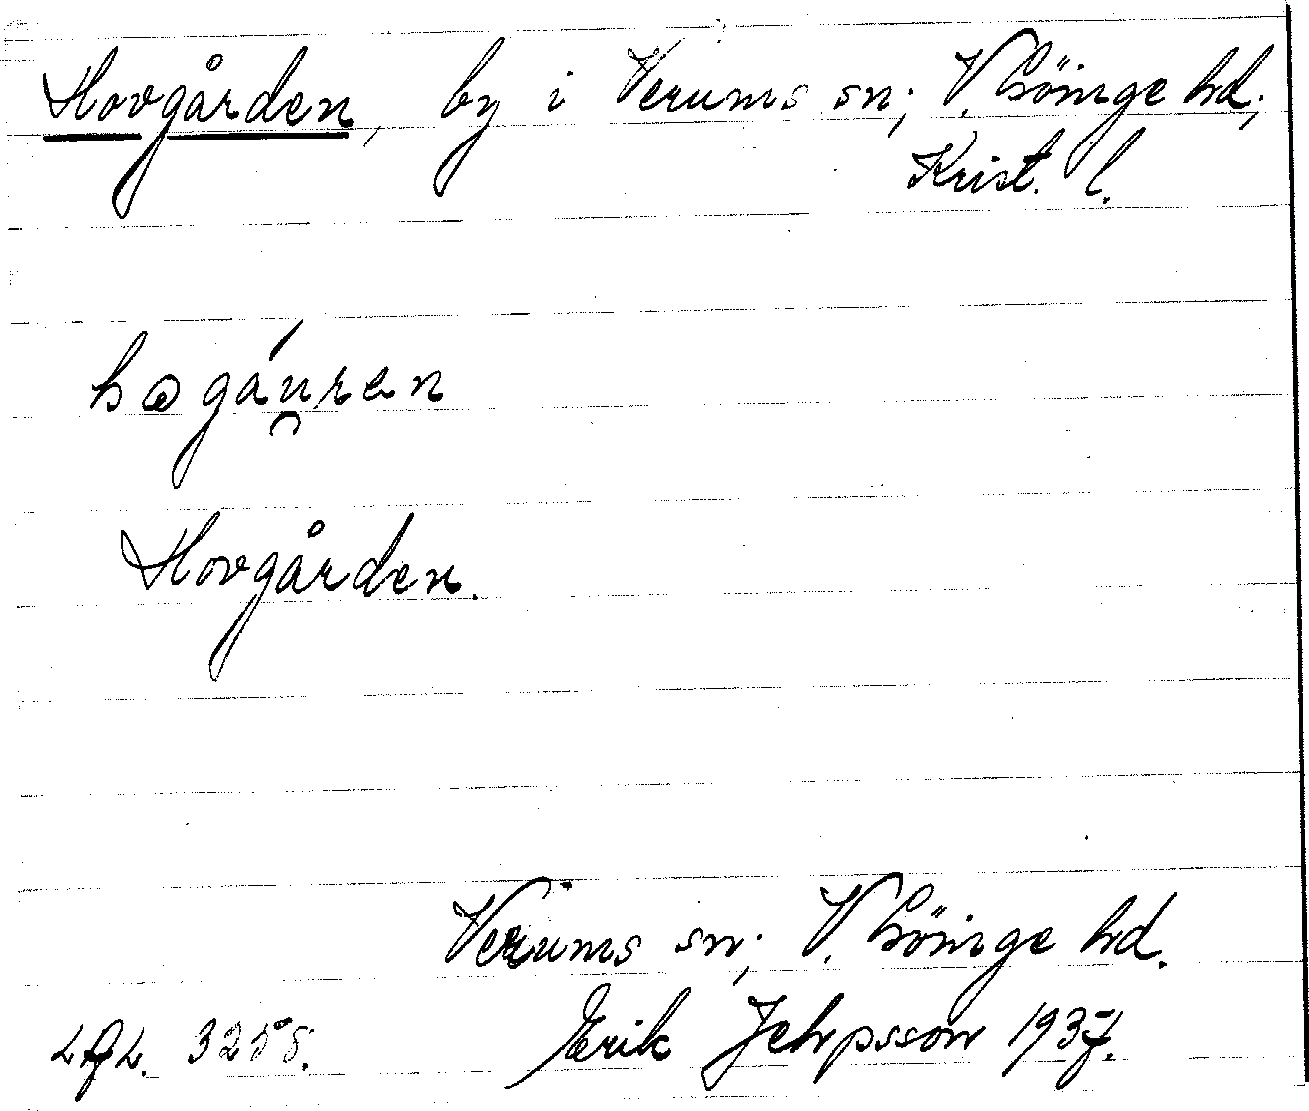 Hovgården, by i Verums sn; V. Göinge hd;
Krist. l.
Hovgården.
Verums sn; V. Göinge hd.
Erik Jeppsson 1937.